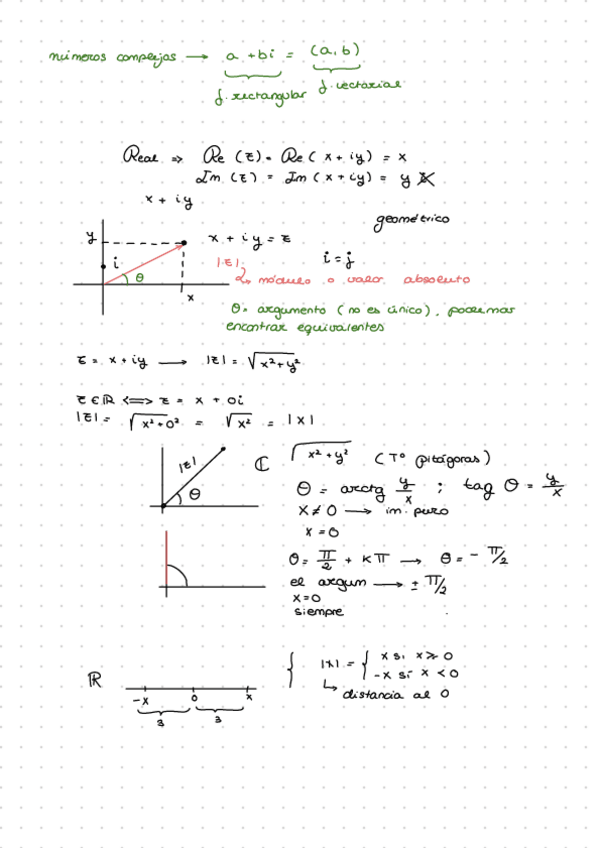 números complejos → a + bi = (a, b)
f. rectangular f. vectorial
Real ⇒ Re (z) = Re ( x + iy) = x
Im (z) = Im ( x + iy) = y
x + iy
geométrico
y
x + iy = z
i
|z|
i = j
θ
↳ módulo o valor absoluto
x
θ = argumento (no es único), podemos
encontrar equivalentes
z = x + iy → |z| = √x²+y²
z ∈ ℝ <=> z = x + 0i
|z| = √x²+0² = √x² = |x|
|z|
θ
ℂ √x² + y² (Tº pitágoras)
θ = arctg y/x ; tag θ = y/x
x ≠ 0 → im. puro
x = 0
θ = π/2 + Kπ → θ = - π/2
el argum → ± π/2
x=0
siempre
ℝ
-x 0 x
3 3
{ |x| = { x si x ≥ 0
-x si x < 0
↳ distancia al 0